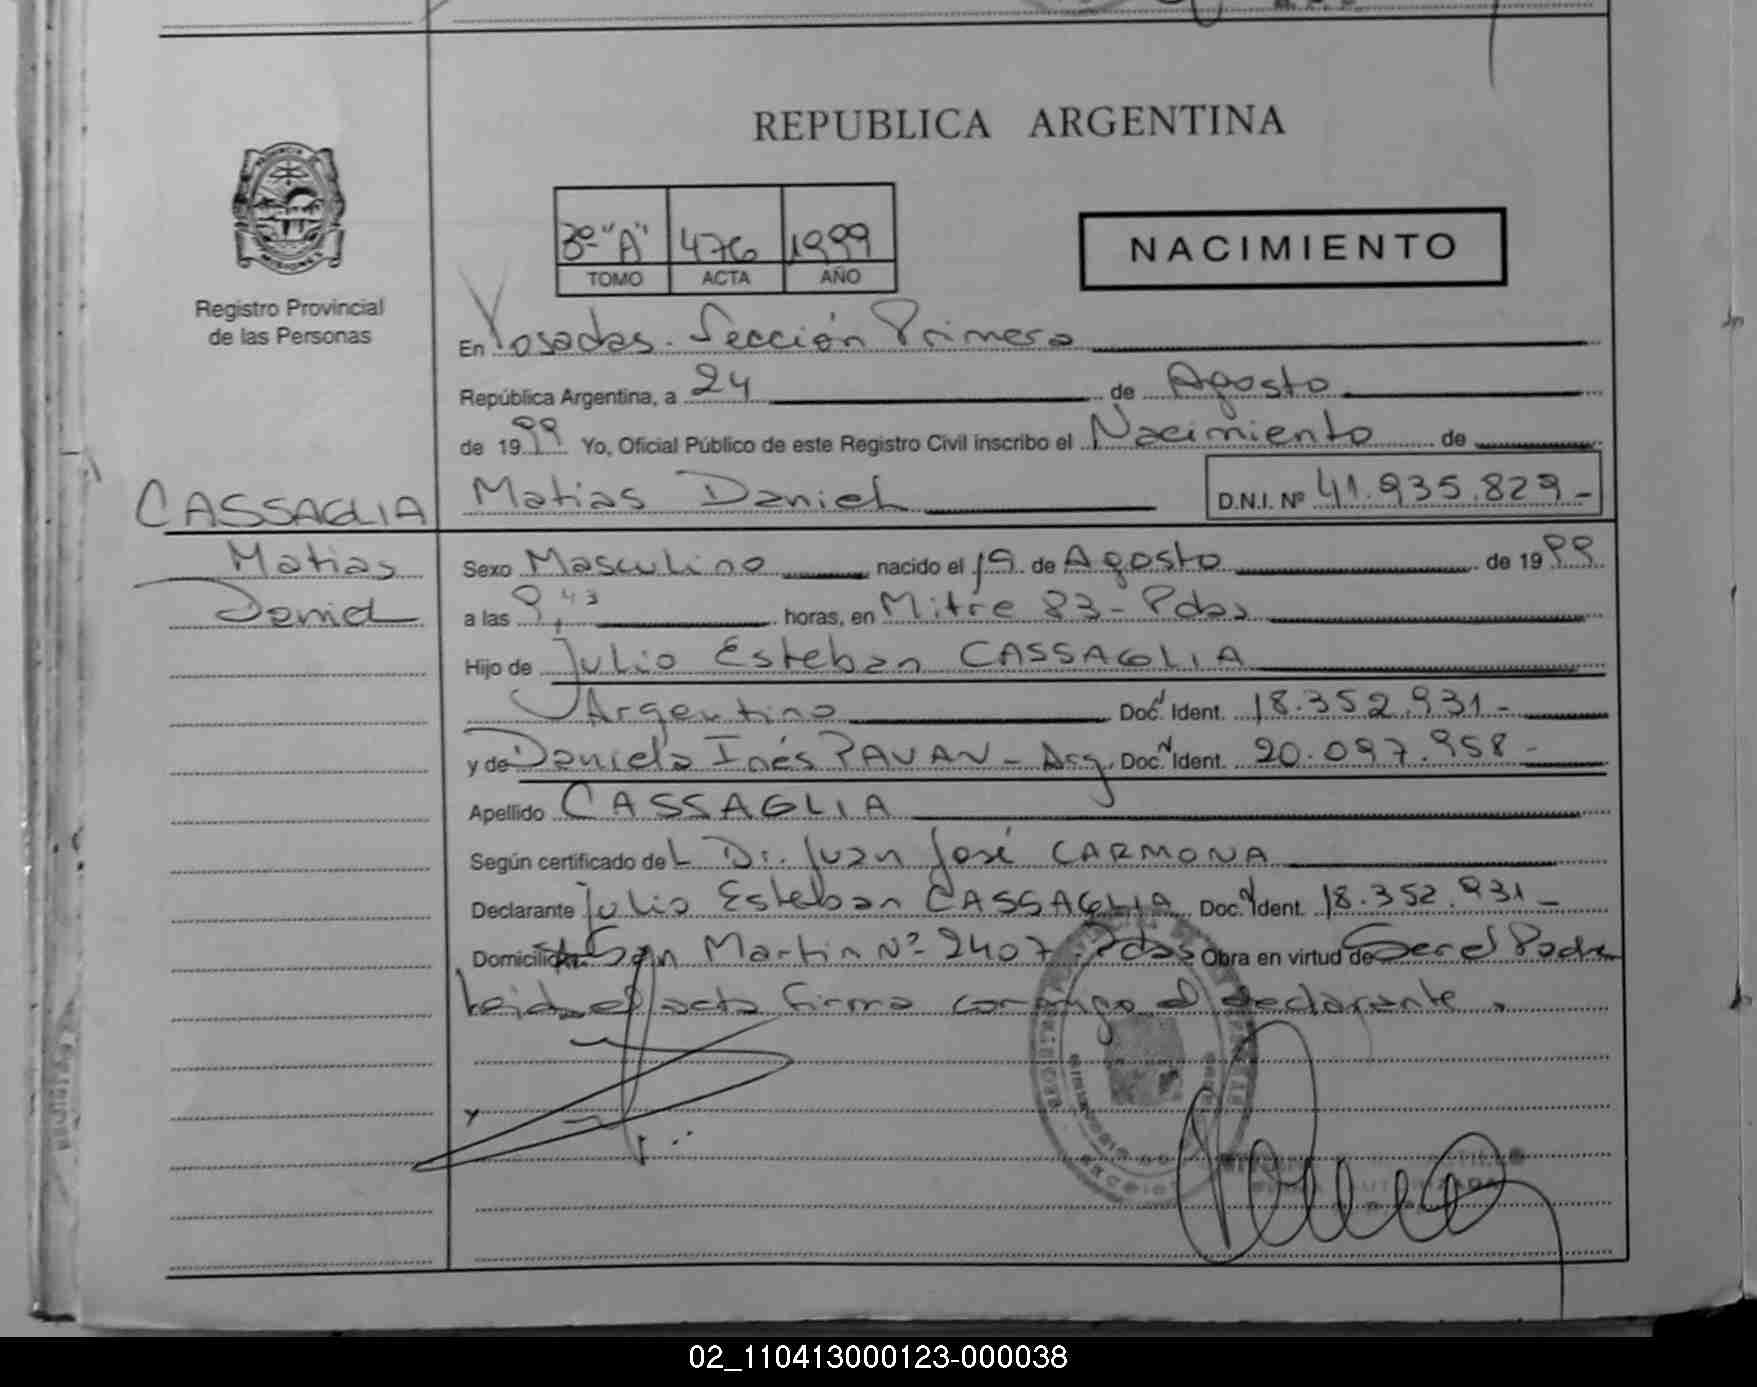 REPUBLICA ARGENTINA
PROVINCIA DE
MISIONES
Registro Provincial
de las Personas
3º "A" 476 1999
TOMO ACTA AÑO
NACIMIENTO
En Posadas. Sección Primera
República Argentina, a 24 de Agosto
de 1999 Yo, Oficial Público de este Registro Civil inscribo el Nacimiento de
CASSAGLIA Matias Daniel D.N.I. Nº 41.935.829-
Matias Sexo Masculino nacido el 19 de Agosto de 1999
Daniel a las 9,43 horas, en Mitre 83- Pdas
Hijo de Julio Esteban CASSAGLIA
Argentino Doc. Ident. 18.352.931-
y de Daniela Inés PAVAN - Arg. Doc. Ident. 20.097.958-
Apellido CASSAGLIA
Según certificado del Dr. Juan José CARMONA
Declarante Julio Esteban CASSAGLIA Doc. Ident. 18.352.931-
Domicilio San Martin Nº 2407 Pdas Obra en virtud de Ser el Padre
Leida el acta firma conmigo el declarante.
02_110413000123-000038